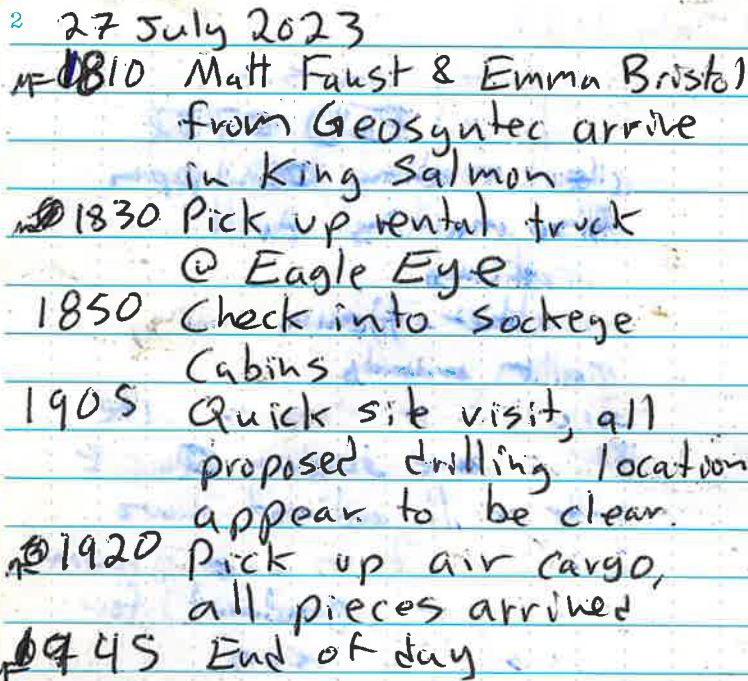 2
27 July 2023
MF 1810 Matt Faust & Emma Bristol
from Geosyntec arrive
in King Salmon
1830 Pick up rental truck
@ Eagle Eye
1850 Check into Sockeye
Cabins
1905 Quick site visit, all
proposed drilling location
appear to be clear.
1920 Pick up air cargo,
all pieces arrived
1945 End of day